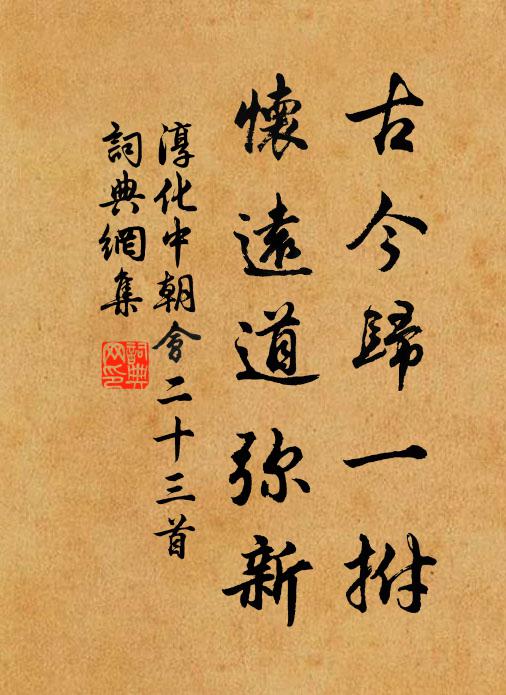 古今歸一拊
懷遠道弥新
淳化中朝會二十三首
詞典網集
詞典網印